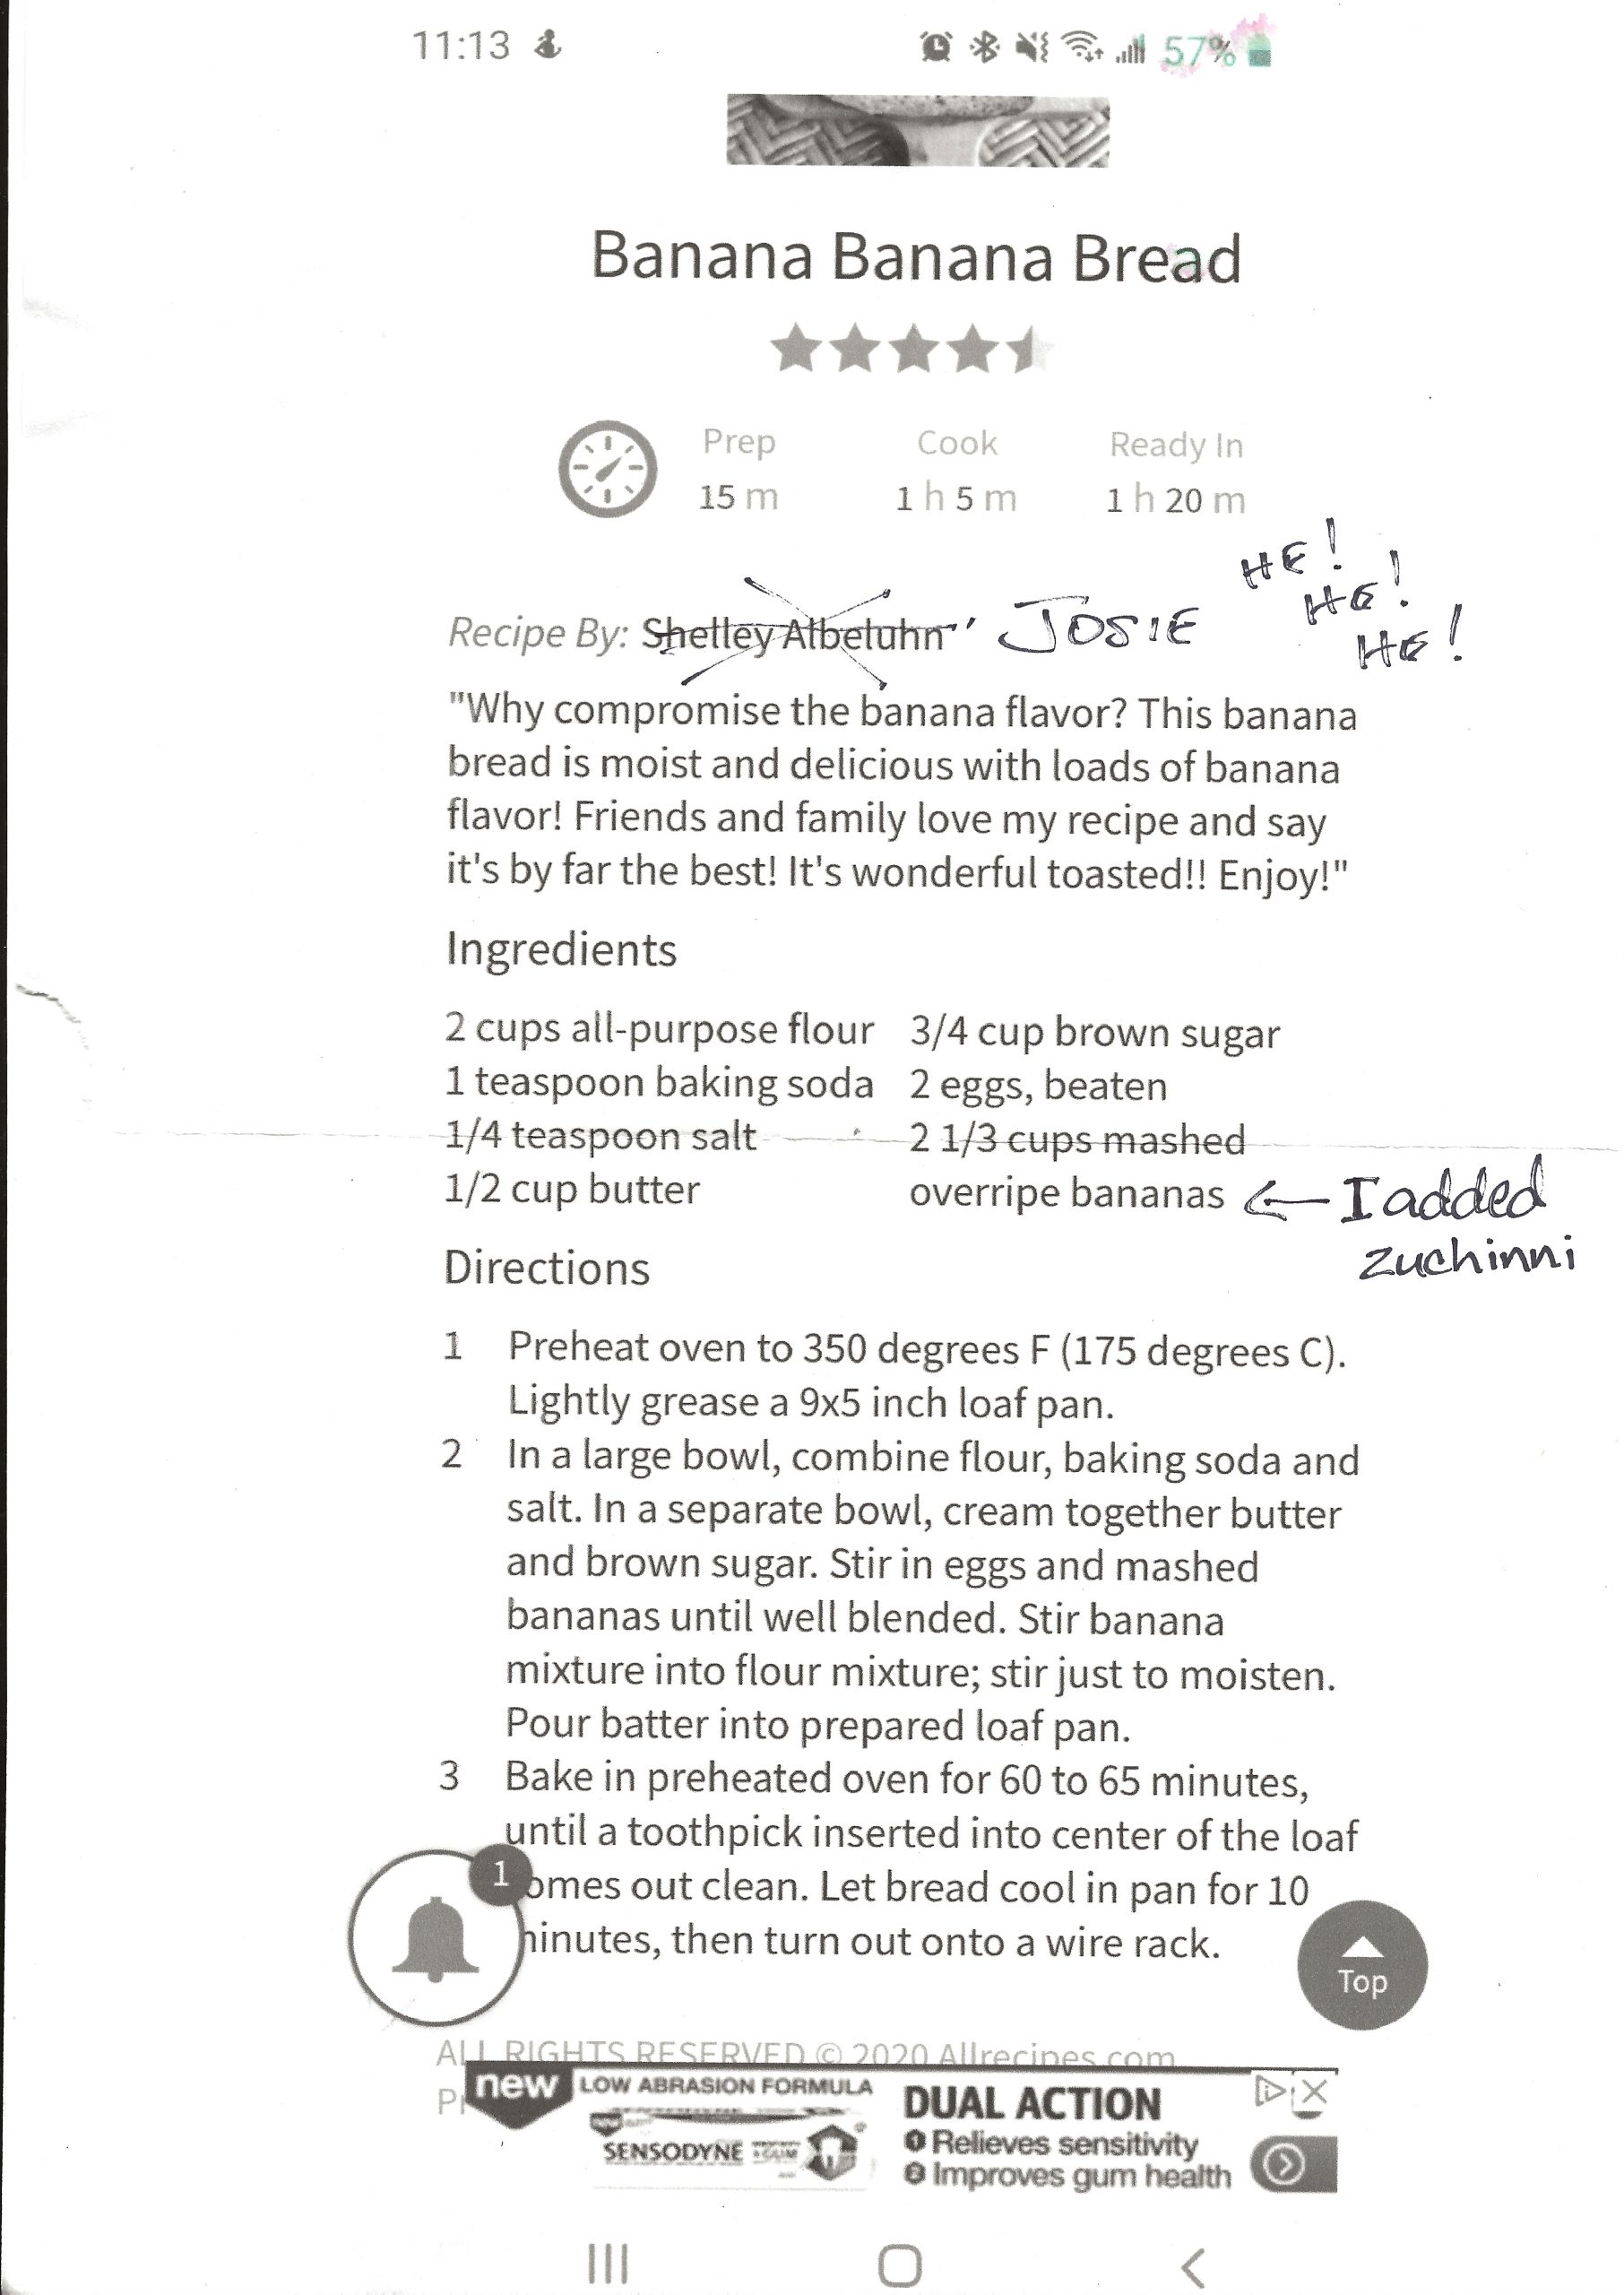 11:13
57%
Banana Banana Bread
Prep Cook Ready In
15 m 1 h 5 m 1 h 20 m
HE!
HE!
HE!
Recipe By: Shelley Albeluhn JOSIE
"Why compromise the banana flavor? This banana
bread is moist and delicious with loads of banana
flavor! Friends and family love my recipe and say
it's by far the best! It's wonderful toasted!! Enjoy!"
Ingredients
2 cups all-purpose flour
1 teaspoon baking soda
1/4 teaspoon salt
1/2 cup butter
3/4 cup brown sugar
2 eggs, beaten
2 1/3 cups mashed
overripe bananas ← I added
zuchinni
Directions
1 Preheat oven to 350 degrees F (175 degrees C).
Lightly grease a 9x5 inch loaf pan.
2 In a large bowl, combine flour, baking soda and
salt. In a separate bowl, cream together butter
and brown sugar. Stir in eggs and mashed
bananas until well blended. Stir banana
mixture into flour mixture; stir just to moisten.
Pour batter into prepared loaf pan.
3 Bake in preheated oven for 60 to 65 minutes,
until a toothpick inserted into center of the loaf
omes out clean. Let bread cool in pan for 10
inutes, then turn out onto a wire rack.
1
Top
ALL RIGHTS RESERVED © 2020 Allrecipes.com
new LOW ABRASION FORMULA
SENSODYNE
DUAL ACTION
1 Relieves sensitivity
2 Improves gum health